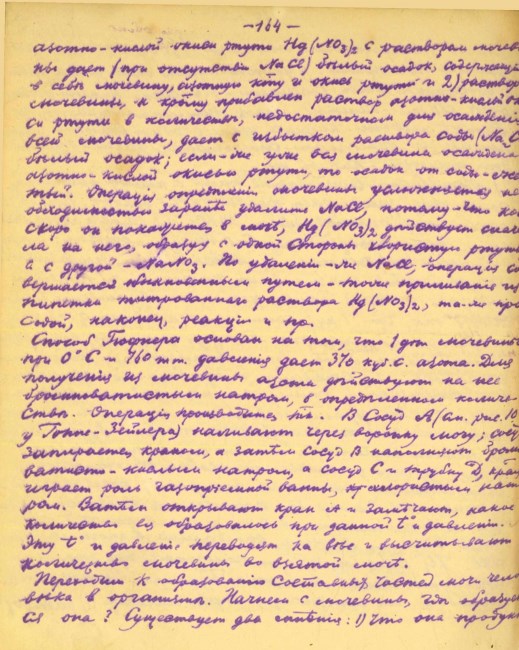 — 164 —
азотно-кислой окиси ртути Hg(NO3)2 с раствором мочеви
ны дает (при отсутствіи NaCl) белый осадок, содержащій
в себе мочевину, азотную к-ту и окись ртути и 2) раствор
мочевины, к коему прибавлен раствор азотно-кислой ок
си ртути в количестве, недостаточном для осажденія
всей мочевины, дает с избытком раствора соды (Na2C
белый осадок; если-же уже вся мочевина осаждена
азотно-кислой окисью ртути, то осадок от соды
тый. Операція опред. мочевины усложняется не
обходимостью заранее удалить NaCl, потому-что
скоро он покажется в моче, Hg(NO3)2 действует снача
ла на него, образуя с одной стороны хлористую ртуть
а с другой - NaNO3. По удаленіи-же NaCl, операція со
вершается обыкновенным путем - приливанія из
пипетки титрованнаго раствора Hg(NO3)2, та-же про
содой, наконец, реакція и пр.
Способ Гюфнера основан на том, что 1 грм мочевины
при 0° С и 760 mm. давленія дает 370 куб. с. азота. Для
полученія из мочевины азота действуют на нее
бромноватистым натром, в определенном количе-
стве. Операція производится так. В сосуд А (см. рис. 10
у Гоппе-Зейлера) наливают через воронку мочу;
запирается краном, а затем сосуд В наполняют бромно
ватисто-кислым натром, а сосуд С и трубку D,
играет роль газопріемной ванны, хлористым нат
ром. Затем открывают кран А и замечают, какое
количество его образовалось при данной t° и давленіи.
Эту t° и давленіе переводят на 0 и высчитывают
количество мочевины во взятой моче.
Переходим к образованію составных частей мочи чело
века в организме. Начнем с мочевины, где образует
ся она? Существует два мненія: 1) что она продук